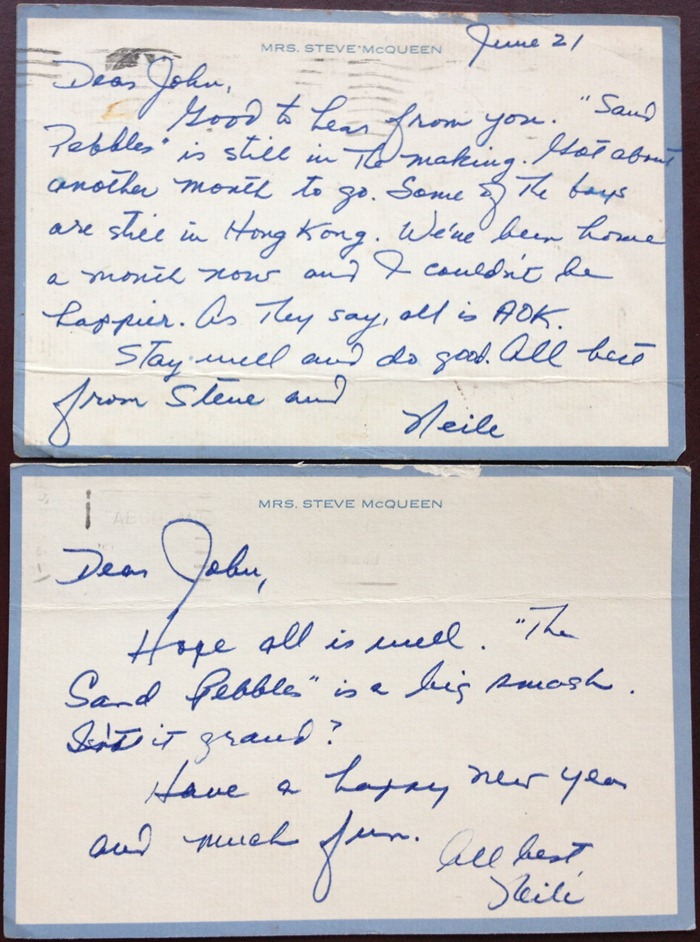 MRS. STEVE McQUEEN
June 21
Dear John,
Good to hear from you. "Sand
Pebbles" is still in the making. Got about
another month to go. Some of the boys
are still in Hong Kong. We've been home
a month now and I couldn't be
happier. As they say, all is AOK.
Stay well and do good. All best
from Steve and
Neile
MRS. STEVE McQUEEN
Dear John,
Hope all is well. "The
Sand Pebbles" is a big smash.
Isn't it grand?
Have a happy new year
and much fun.
All best
Neile